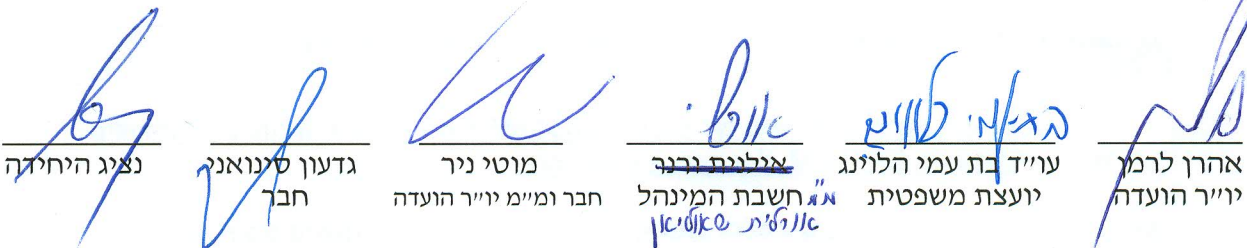 אהרן לרמן
יו״ר הועדה
עו״ד בת עמי הלוינג
יועצת משפטית
אילנית ורנר
מ״מ חשבת המינהל
אורלית
מוטי ניר
חבר ומ״מ יו״ר הועדה
גדעון סינואני
חבר
נציג היחידה